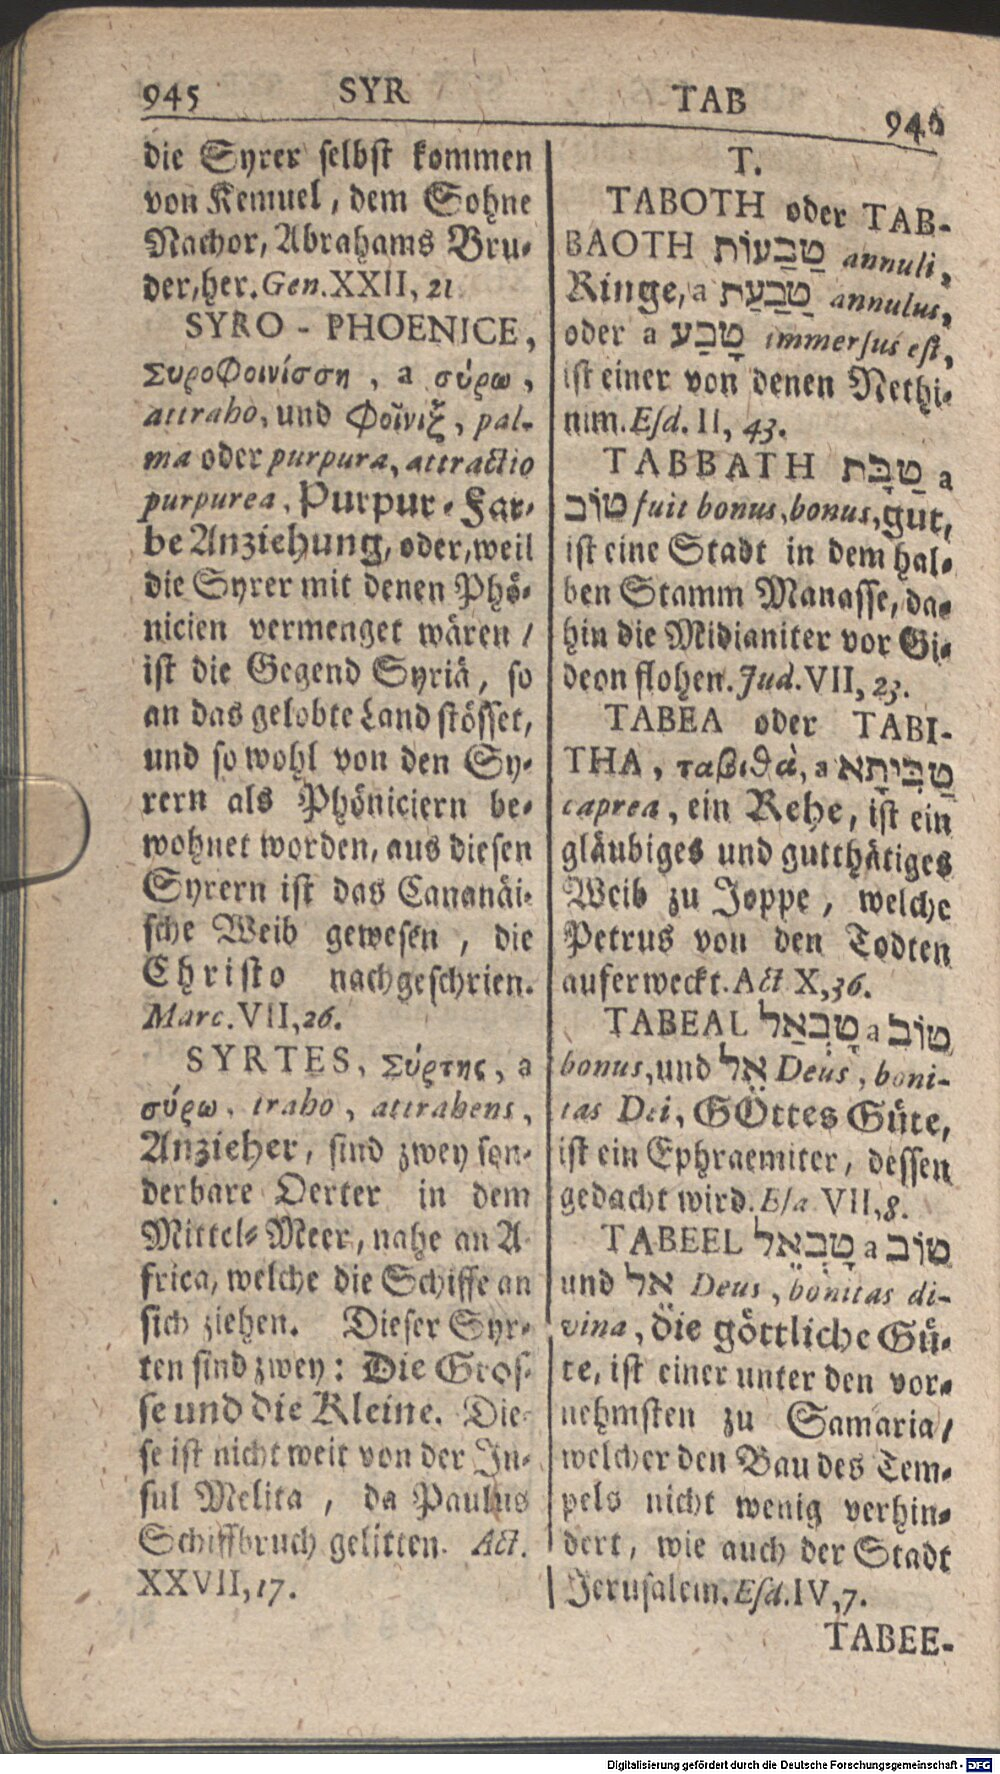 945 SYR
die Syrer selbst kommen
von Kemuel, dem Sohne
Nachor, Abrahams Bru-
der, her. Gen. XXII, 21
SYRO - PHOENICE,
Συροφοινίσση, a σύρω,
attraho, und φοῖνιξ, pal-
ma oder purpura, attractio
purpurea, Purpur-Far-
be Anziehung, oder, weil
die Syrer mit denen Phö-
nicien vermenget wären /
ist die Gegend Syriä, so
an das gelobte Land stösset,
und so wohl von den Sy-
rern als Phöniciern be-
wohnet worden, aus diesen
Syrern ist das Cananäi-
sche Weib gewesen, die
Christo nachgeschrien.
Marc. VII, 26.
SYRTES, Σύρτης, a
σύρω, traho, attrahens,
Anzieher, sind zwey son-
derbare Oerter in dem
Mittel-Meer, nahe an A-
frica, welche die Schiffe an
sich ziehen. Dieser Syr-
ten sind zwey: Die Gros-
se und die Kleine. Die-
se ist nicht weit von der In-
sul Melita, da Paulus
Schiffbruch gelitten. Act.
XXVII, 17.
TAB 946
T.
TABOTH oder TAB-
BAOTH טַבַּעוֹת annuli,
Ringe, a טַבַּעַת annulus,
oder a טָבַע immersus est,
ist einer von denen Nethi-
nim. Esd. II, 43.
TABBATH טַבָּת a
טוֹב fuit bonus, bonus, gut,
ist eine Stadt in dem hal-
ben Stamm Manasse, da-
hin die Midianiter vor Gi-
deon flohen. Jud. VII, 23.
TABEA oder TABI-
THA, ταβιθὰ, a טַבְיתָא
caprea, ein Rehe, ist ein
gläubiges und gutthätiges
Weib zu Joppe, welche
Petrus von den Todten
auferweckt. Act X, 36.
TABEAL טָבְאַל a טוֹב
bonus, und אֵל Deus, boni-
tas Dei, GOttes Güte,
ist ein Ephraemiter, dessen
gedacht wird. Esa VII, 8.
TABEEL טָבְאֵל a טוֹב
und אֵל Deus, bonitas di-
vina, die göttliche Gü-
te, ist einer unter den vor-
nehmsten zu Samaria /
welcher den Bau des Tem-
pels nicht wenig verhin-
dert, wie auch der Stadt
Jerusalem. Esd. IV, 7.
TABEE-
Digitalisierung gefördert durch die Deutsche Forschungsgemeinschaft - DFG